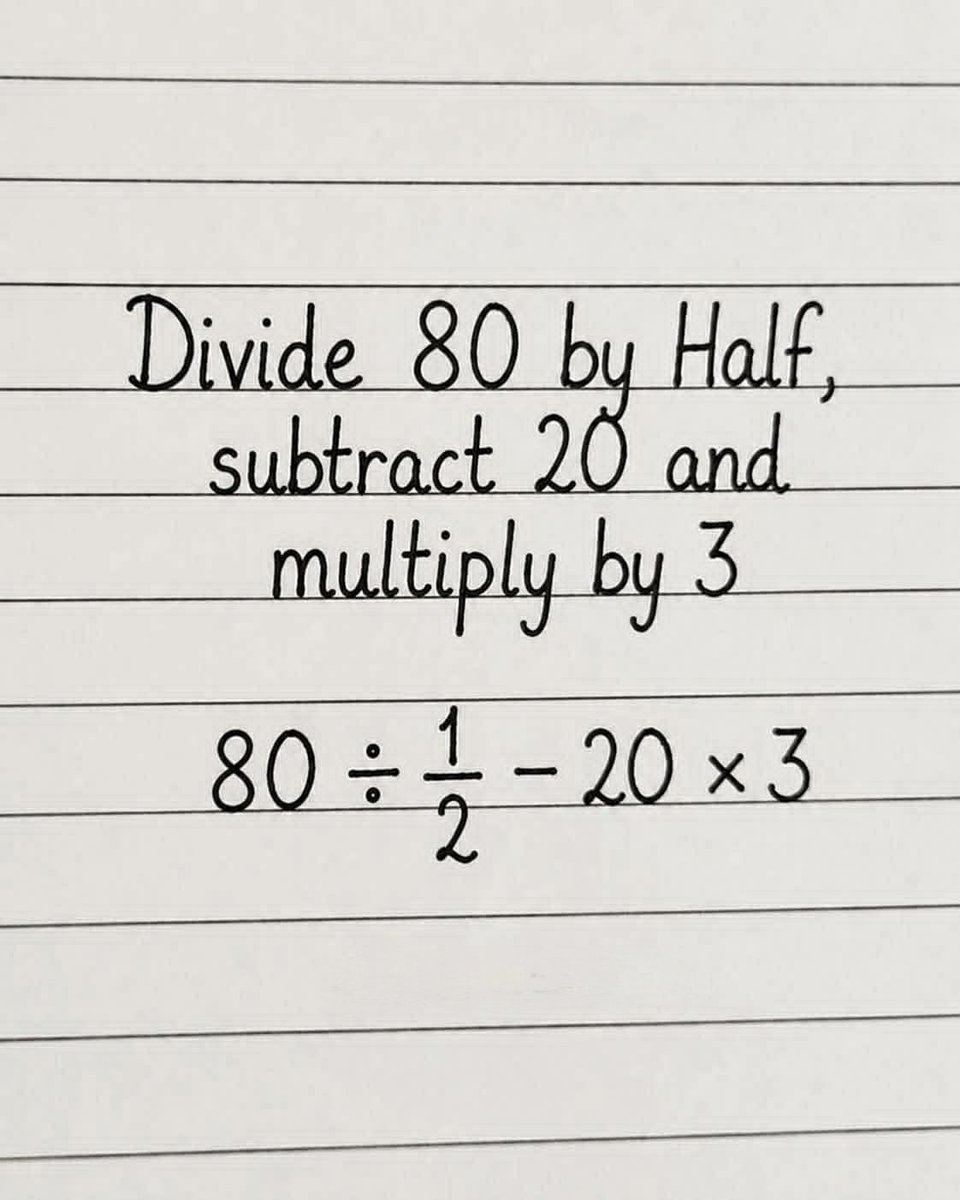 Divide 80 by Half,
subtract 20 and
multiply by 3
80 ÷ 1/2 − 20 × 3